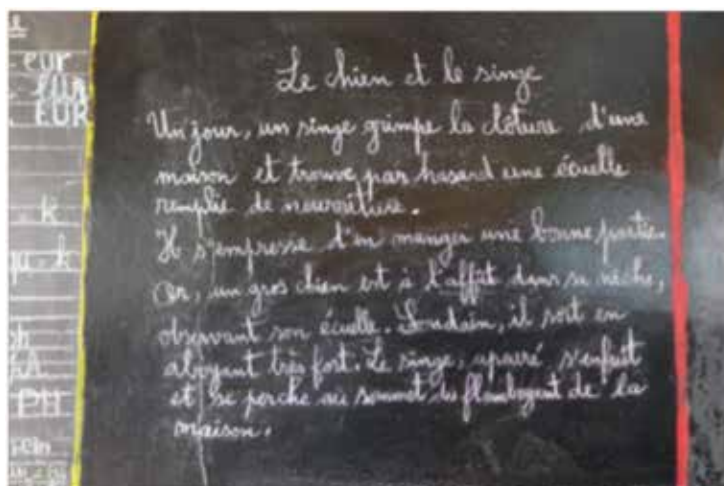 eur
EUR
EUR
k
k
ph
PH
Le chien et le singe
Un jour, un singe grimpe la clôture d'une
maison et trouve par hasard une écuelle
remplie de nourriture.
Il s'empresse d'en manger une bonne partie.
Or, un gros chien est à l'affût dans sa niche,
observant son écuelle. Soudain, il sort en
aboyant très fort. Le singe, apeuré s'enfuit
et se perche au sommet du flamboyant de la
maison.